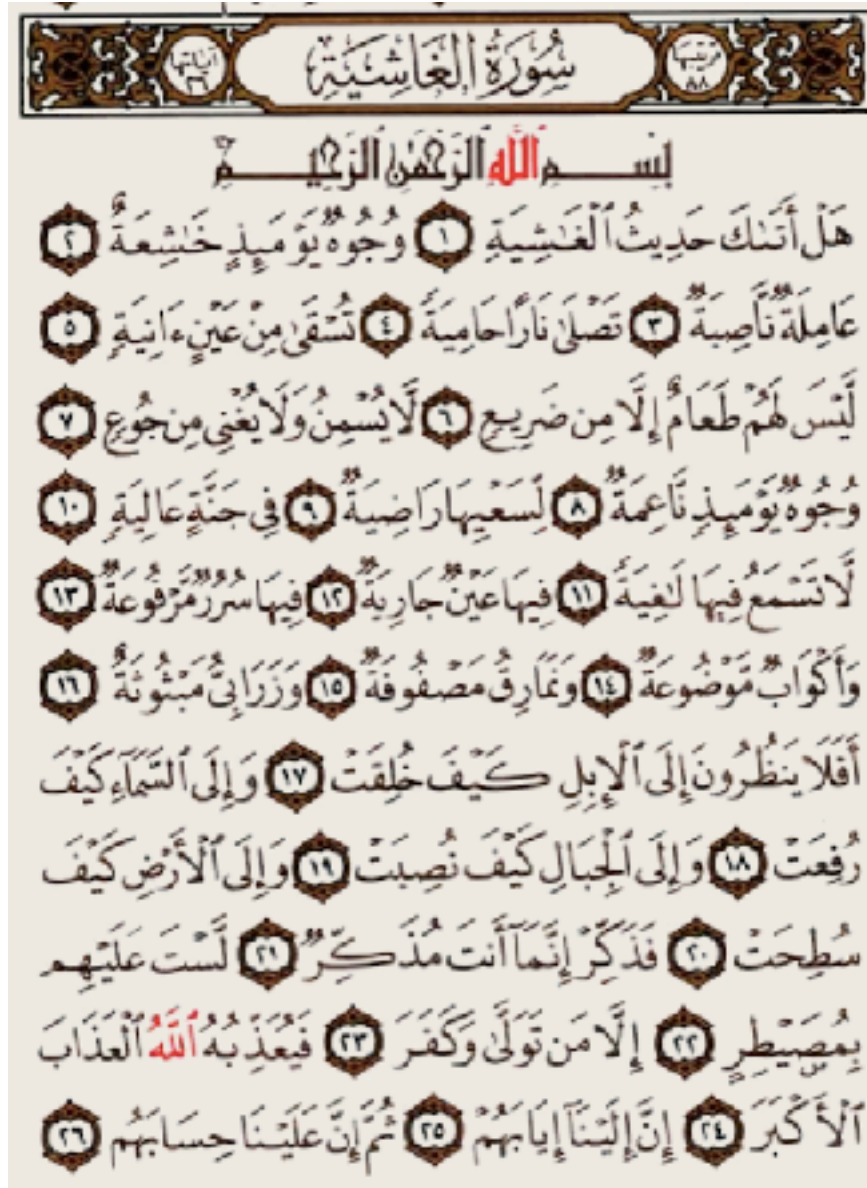 ترتيبها ٨٨ سُورَةُ الغَاشِيَةِ آياتها ٢٦
بِسْمِ ٱللَّهِ ٱلرَّحْمَٰنِ ٱلرَّحِيمِ
هَلْ أَتَىٰكَ حَدِيثُ ٱلْغَٰشِيَةِ ١ وُجُوهٌ يَوْمَئِذٍ خَٰشِعَةٌ ٢
عَامِلَةٌ نَّاصِبَةٌ ٣ تَصْلَىٰ نَارًا حَامِيَةً ٤ تُسْقَىٰ مِنْ عَيْنٍ ءَانِيَةٍ ٥
لَّيْسَ لَهُمْ طَعَامٌ إِلَّا مِن ضَرِيعٍ ٦ لَّا يُسْمِنُ وَلَا يُغْنِى مِن جُوعٍ ٧
وُجُوهٌ يَوْمَئِذٍ نَّاعِمَةٌ ٨ لِّسَعْيِهَا رَاضِيَةٌ ٩ فِى جَنَّةٍ عَالِيَةٍ ١٠
لَّا تَسْمَعُ فِيهَا لَٰغِيَةً ١١ فِيهَا عَيْنٌ جَارِيَةٌ ١٢ فِيهَا سُرُرٌ مَّرْفُوعَةٌ ١٣
وَأَكْوَابٌ مَّوْضُوعَةٌ ١٤ وَنَمَارِقُ مَصْفُوفَةٌ ١٥ وَزَرَابِىُّ مَبْثُوثَةٌ ١٦
أَفَلَا يَنظُرُونَ إِلَى ٱلْإِبِلِ كَيْفَ خُلِقَتْ ١٧ وَإِلَى ٱلسَّمَآءِ كَيْفَ
رُفِعَتْ ١٨ وَإِلَى ٱلْجِبَالِ كَيْفَ نُصِبَتْ ١٩ وَإِلَى ٱلْأَرْضِ كَيْفَ
سُطِحَتْ ٢٠ فَذَكِّرْ إِنَّمَآ أَنتَ مُذَكِّرٌ ٢١ لَّسْتَ عَلَيْهِم
بِمُصَيْطِرٍ ٢٢ إِلَّا مَن تَوَلَّىٰ وَكَفَرَ ٢٣ فَيُعَذِّبُهُ ٱللَّهُ ٱلْعَذَابَ
ٱلْأَكْبَرَ ٢٤ إِنَّ إِلَيْنَآ إِيَابَهُمْ ٢٥ ثُمَّ إِنَّ عَلَيْنَا حِسَابَهُم ٢٦